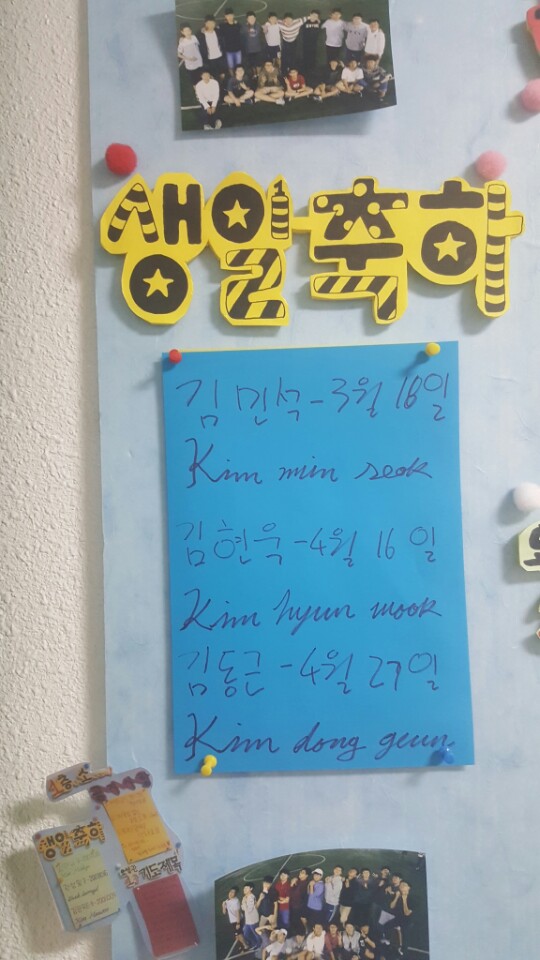 생일축하
김민석-3월 18일
Kim min seok
김현욱-4월 16일
Kim hyun wook
김동근-4월 27일
Kim dong geun
생일축하
기도제목